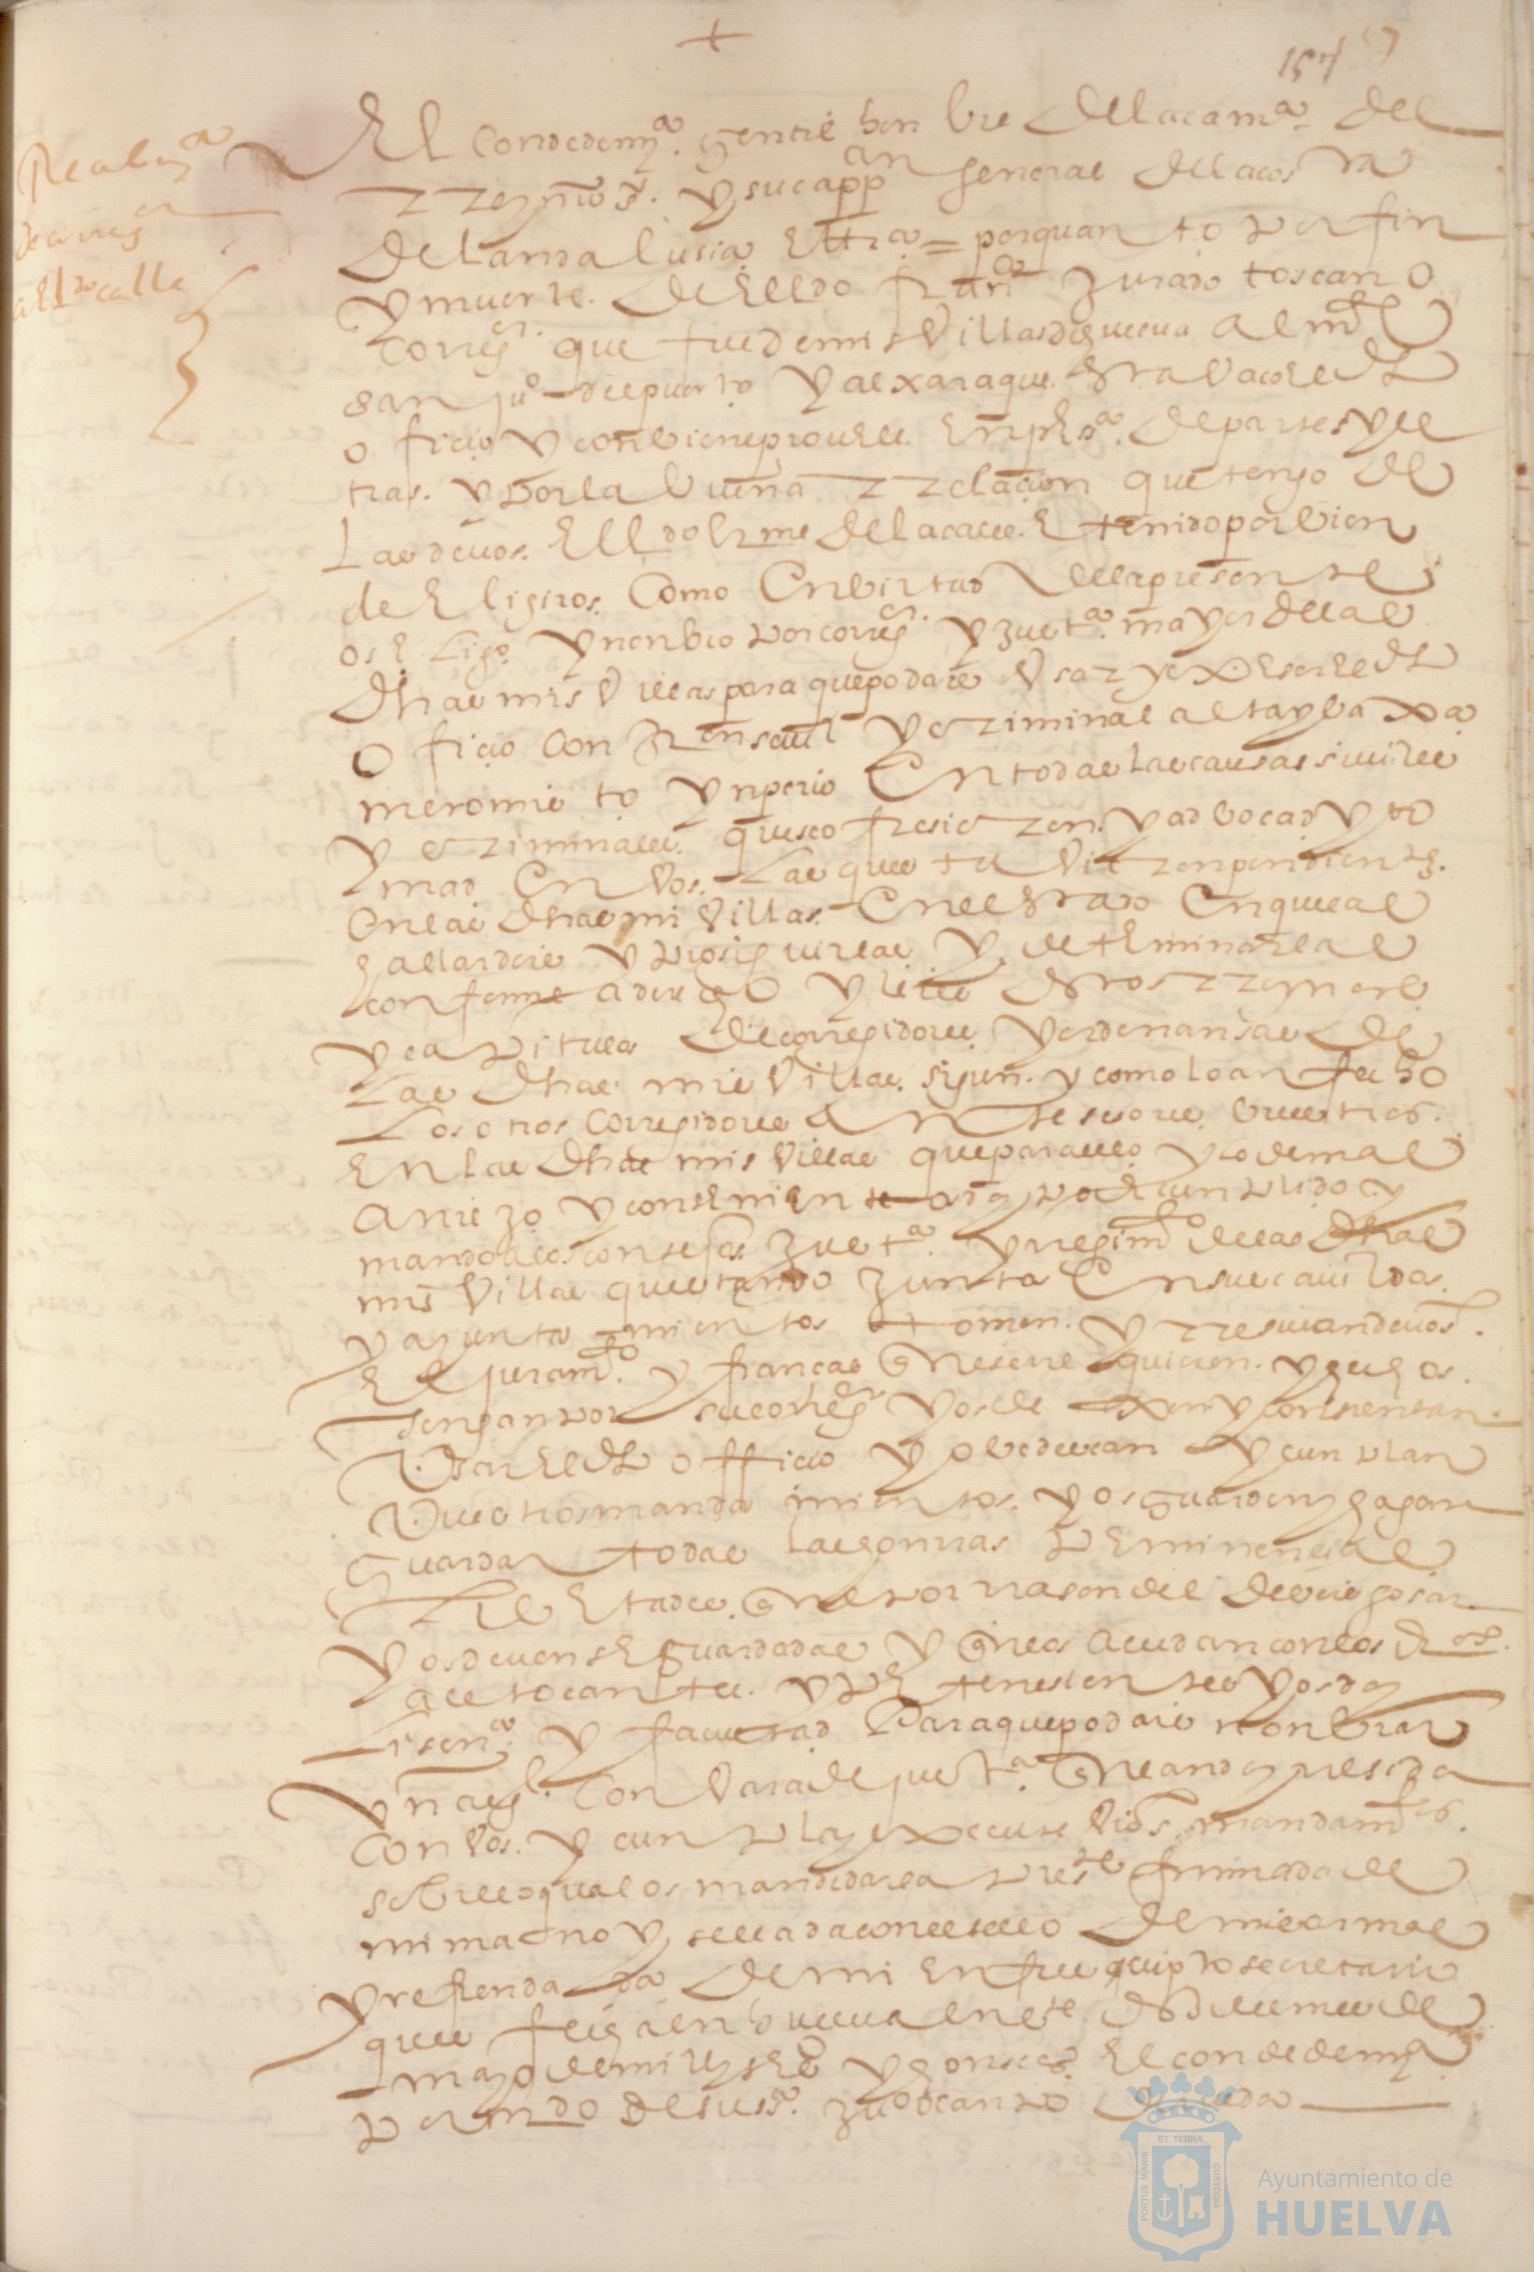 +
157
Real
de corregor
al ldo calle
El Conde de nieba gentil honbre de la cama del
rrey nro sr. y su cappan general de la costa
del andalusia Etta = por quanto por fin
y muerte. de el ldo franco Jurado toscano
corregor. que fue de mis Villas de gueeva
san juo del puerto y alxaraque. esta baco el dho
oficio y conbiene proueelle En persa. de partes y le
tras. y por la buena rrelaçion que tengo de
Las de vos. El ldo de la calle. E tenido por bien
de Eligiros. Como En birtud de la presente
os Eligo y nonbro por corregor. y Justa. mayor de las
dhas mis Villas para que podais Usar y exerser el dho
oficio con Juron sevil y criminal alta y baxa
mero misto ynperio En todas las causas siviles
y criminales. que se ofresieren y adbocad y to
mad En Vos. Las que estuvieren pendientes.
En las dhas mi Villas En el estado En que las
hallardeis y proseguirlas y determinarlas
conforme a derecho y leies destos rreynos
y capitulos de corregidores y ordenansas de
Las dhas mis Villas. sigun. y como lo an fecho
Los otros corregidores Antesesores buestros.
En las dhas mis Villas que para ello y lo demas
anejo y conserniente os doy poder cunplido y
mando a los consejos Justa. y regimto de las dhas
mis Villas que estando Juntos En sus cavildos
y ayuntamientos tomen. y rresivan de vos.
El juramto. y fianças que se rrequieren. y fecho os
tengan por su corregor y os dexen y consientan
Usar El dho offiçio y obedescan y cunplan
Vuestros mandamientos. y os guarden y hagan
guardar todas las honrras preminencias
Libertades que por rrason del debeis gosar
y os deven ser guardadas y que os acudan con los dros
a el tocantes. y pertenesientes y os doy
Lisena. y facultad Para que podais nonbrar
Un algl. Con Vara de justa que ande y resida
con Vos. y cunpla y execute Vros mandamtos.
sobre lo qual os mande dar la preste firmada de
mi mano y sellada con el sello de mis armas
y refrendada de mi secretario
que es fecha en huelva
mayo de mil y seis y El conde de nieba
por mdo de su sa. Juo de canto
Ayuntamiento de
HUELVA
PORTUS MARIS
ET TERRÆ
CUSTODIA